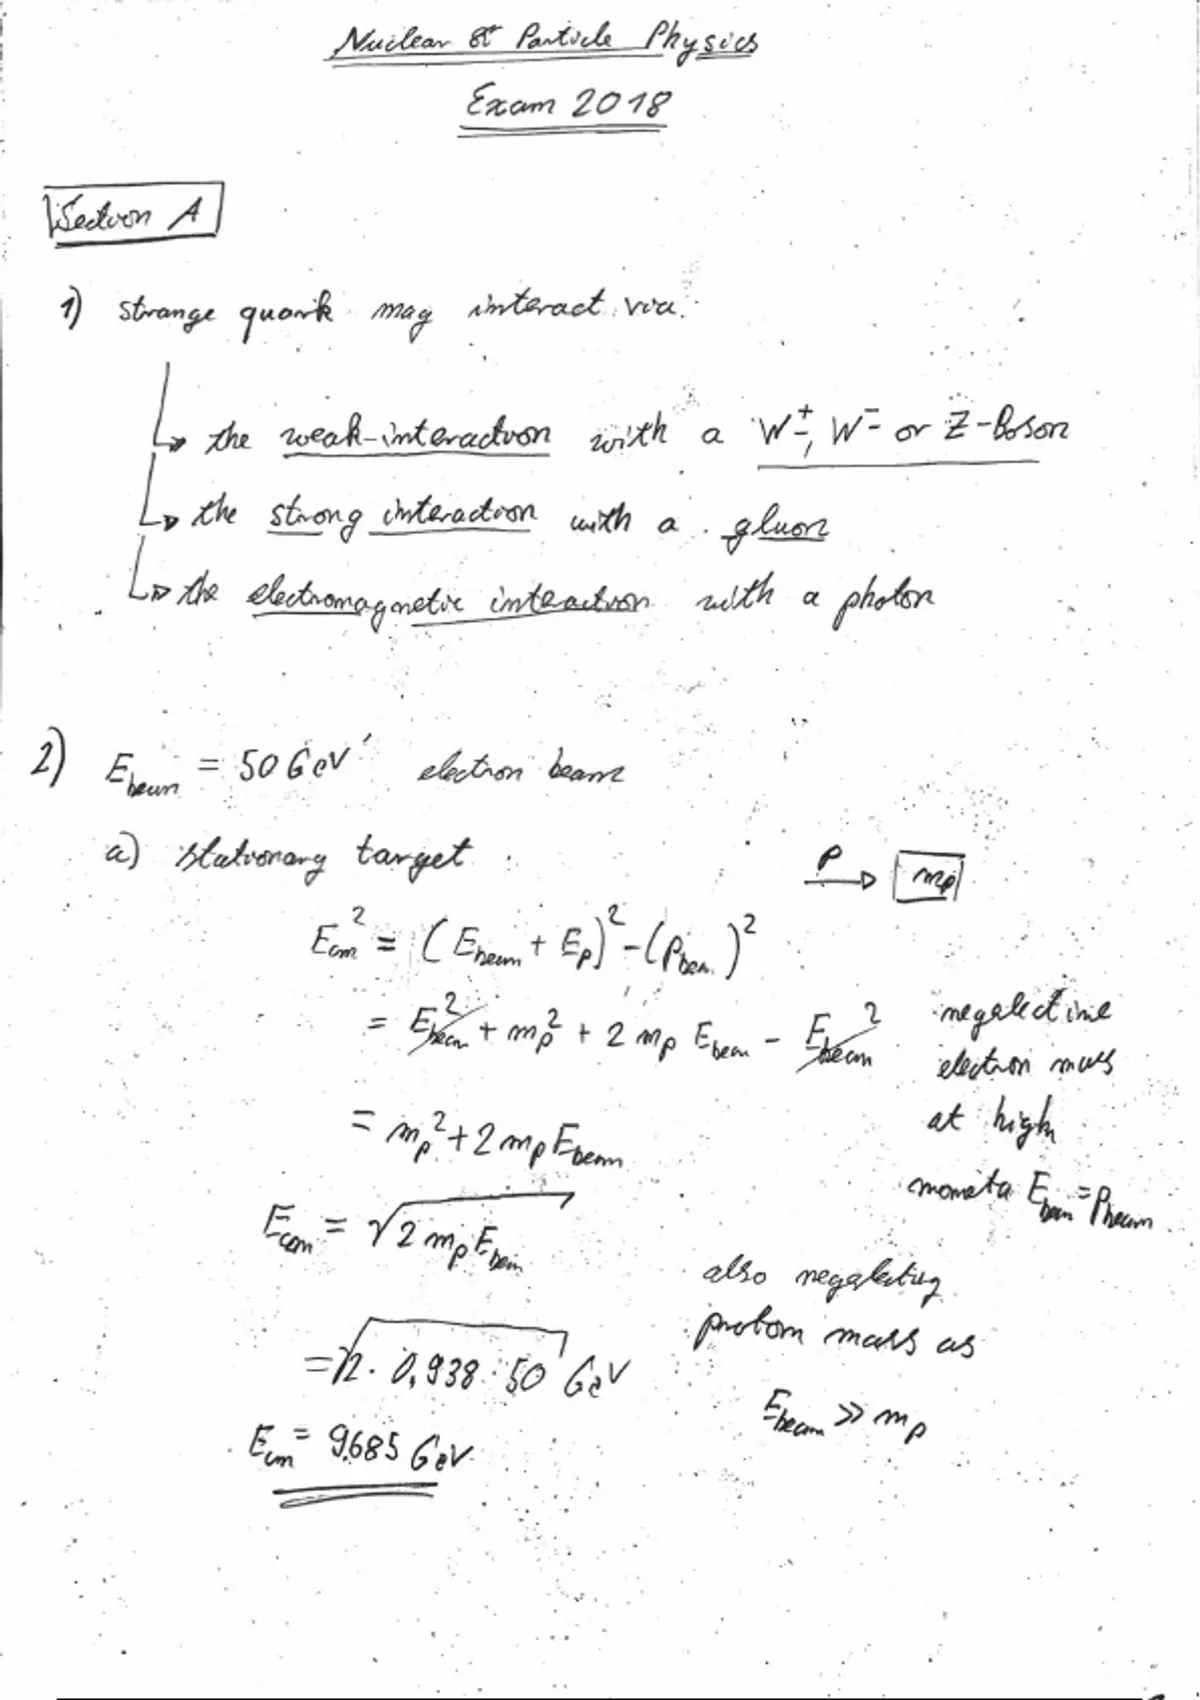 Nuclear & Particle Physics
Exam 2018
Section A
1) strange quark may interact via:
↳ the weak-interaction with a W⁺, W⁻ or Z-Boson
↳ the strong interaction with a gluon
↳ the electromagnetic interaction with a photon
2) E_beam = 50 GeV electron beam
a) stationary target
p → m_p
E_cm² = (E_beam + E_p)² - (p_beam)²
= E_beam² + m_p² + 2 m_p E_beam - E_beam²
neglecting
electron mass
at high
momenta E_beam = p_beam
= m_p² + 2 m_p E_beam
E_com = √(2 m_p E_beam)
also neglecting
proton mass as
E_beam >> m_p
= √(2 · 0,938 · 50) GeV
E_cm = 9.685 GeV